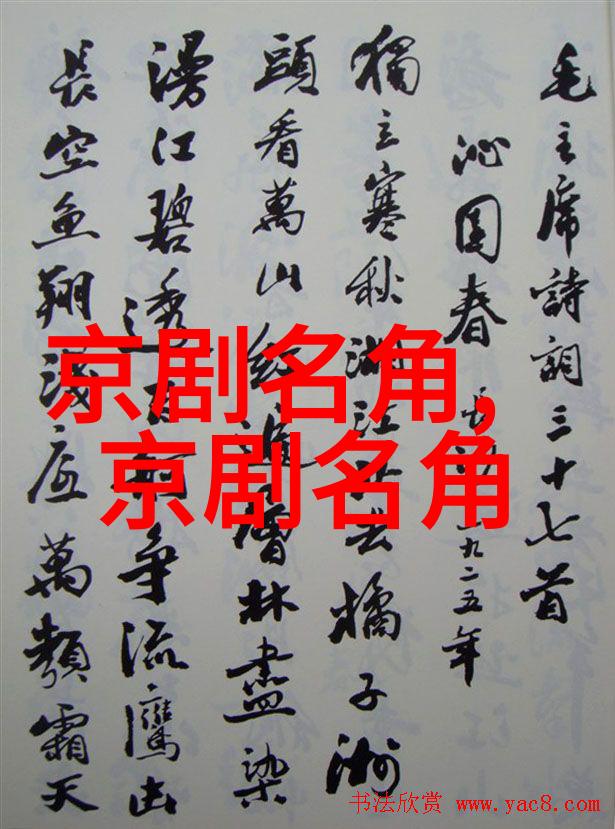 毛主席詩詞三十七首
沁園春 長沙 一九二五年
獨立寒秋湘江北去橘子洲
頭看萬山紅遍層林盡染
漫江碧透百舸争流鷹击
長空魚翔浅底萬類霜天
京剧名角,
京剧名角
书法欣赏 www.yac8.com